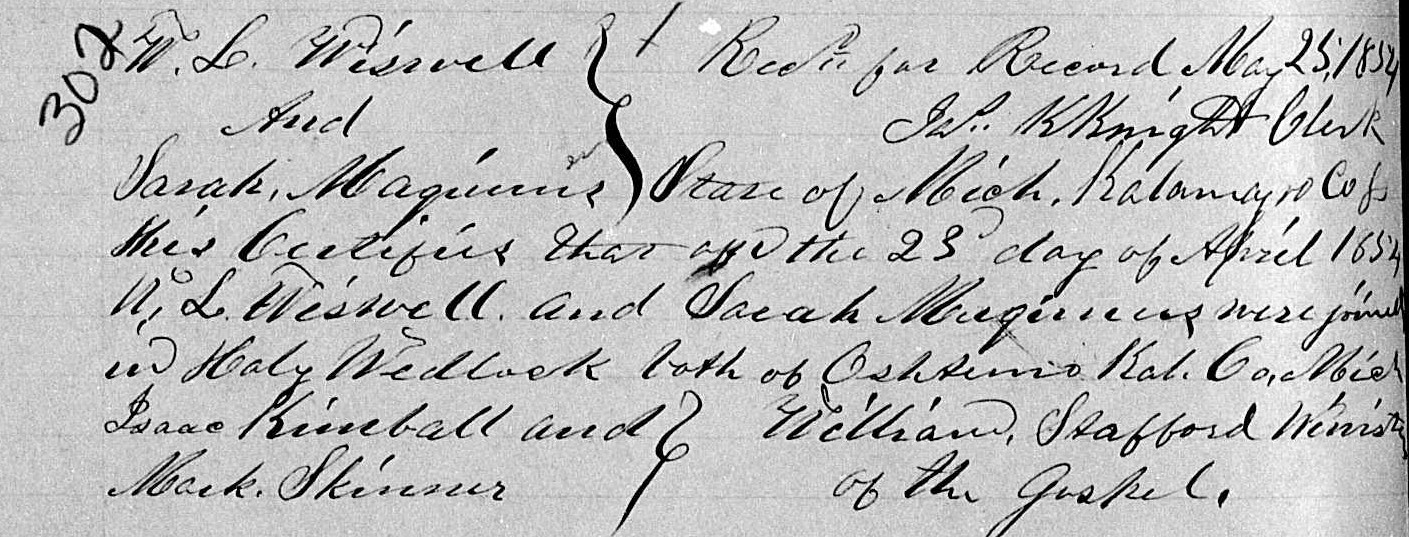 302
W. L. Wiswell } Rec'd for Record May 25, 1854
And Jas. K Knight Clerk
Sarah, Maginnis } State of Mich. Kalamazoo Co ss
this Certifies that on the 23 day of April 1854
W, L. Wiswell. and Sarah Maginnis were joined
in Holy Wedlock both of Oshtemo Kal. Co, Mich
Isaac Kimball and } William, Stafford Minister
Mark. Skinner of the Gospel.